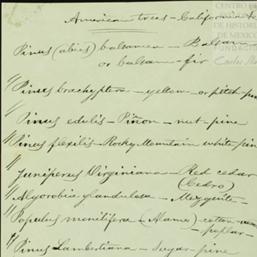 CENTRO
DE HISTOR
DE MEXICO
American trees - California &c
Pinus (abies) balsamea - Balsam
or balsam-fir
Pinus brachyptera - yellow or pitch pin
Pinus edulis - Piñon - nut-pine
Pinus flexilis - Rocky Mountain white-pine
Juniperus Virginiana - Red cedar
(Cedro)
Algorobia glandulosa - Mezquite
Populus monilifera (Alamo) cotton
poplar
Pinus Lambertiana - Sugar pine